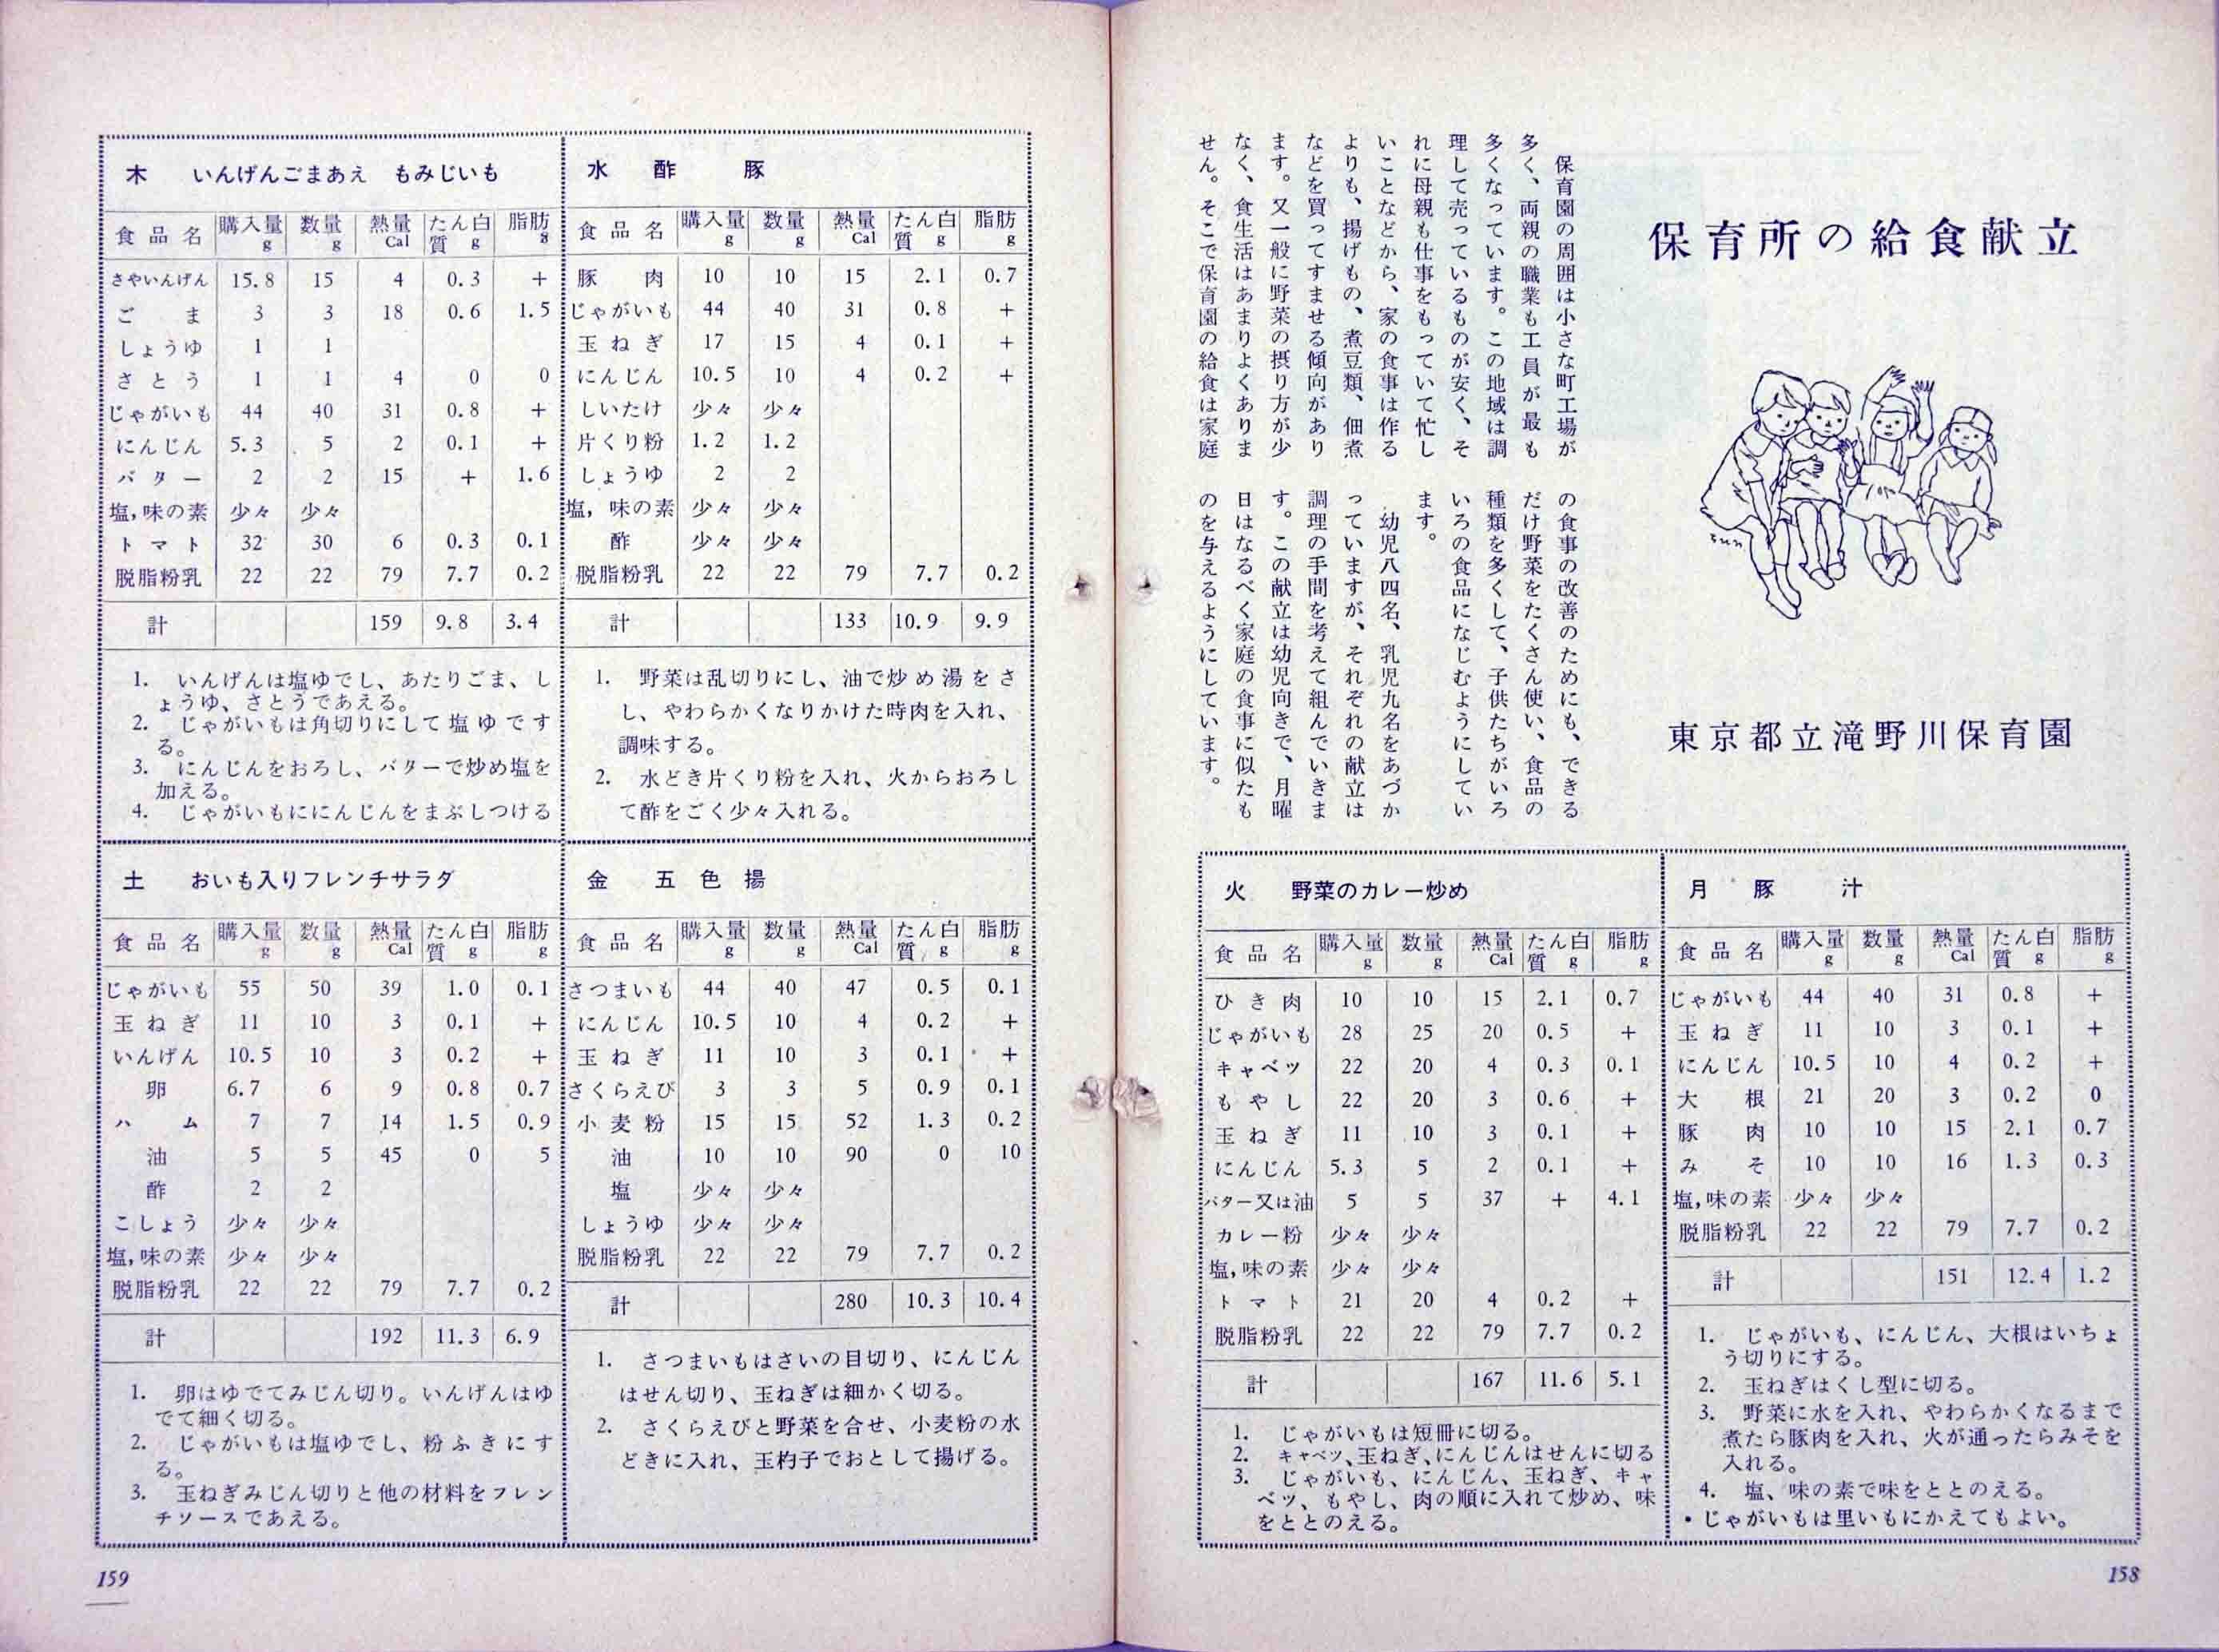 保育所の給食献立
東京都立滝野川保育園
保育園の周囲は小さな町工場が
多く、両親の職業も工員が最も
多くなっています。この地域は調
理して売っているものが安く、そ
れに母親も仕事をもっていて忙し
いことなどから、家の食事は作る
よりも、揚げもの、煮豆類、佃煮
などを買ってすませる傾向があり
ます。又一般に野菜の摂り方が少
なく、食生活はあまりよくありま
せん。そこで保育園の給食は家庭
の食事の改善のためにも、できる
だけ野菜をたくさん使い、食品の
種類を多くして、子供たちがいろ
いろの食品になじむようにしてい
ます。
幼児八四名、乳児九名をあづか
っていますが、それぞれの献立は
調理の手間を考えて組んでいきま
す。この献立は幼児向きで、月曜
日はなるべく家庭の食事に似たも
のを与えるようにしています。
月 豚 汁
食品名 購入量g 数量g 熱量Cal たん白質g 脂肪g
じゃがいも 44 40 31 0.8 +
玉ねぎ 11 10 3 0.1 +
にんじん 10.5 10 4 0.2 +
大根 21 20 3 0.2 0
豚肉 10 10 15 2.1 0.7
みそ 10 10 16 1.3 0.3
塩,味の素 少々 少々
脱脂粉乳 22 22 79 7.7 0.2
計 151 12.4 1.2
1. じゃがいも、にんじん、大根はいちょ
う切りにする。
2. 玉ねぎはくし型に切る。
3. 野菜に水を入れ、やわらかくなるまで
煮たら豚肉を入れ、火が通ったらみそを
入れる。
4. 塩、味の素で味をととのえる。
・じゃがいもは里いもにかえてもよい。
火 野菜のカレー炒め
食品名 購入量g 数量g 熱量Cal たん白質g 脂肪g
ひき肉 10 10 15 2.1 0.7
じゃがいも 28 25 20 0.5 +
キャベツ 22 20 4 0.3 0.1
もやし 22 20 3 0.6 +
玉ねぎ 11 10 3 0.1 +
にんじん 5.3 5 2 0.1 +
バター又は油 5 5 37 + 4.1
カレー粉 少々 少々
塩,味の素 少々 少々
トマト 21 20 4 0.2 +
脱脂粉乳 22 22 79 7.7 0.2
計 167 11.6 5.1
1. じゃがいもは短冊に切る。
2. キャベツ、玉ねぎ、にんじんはせんに切る
3. じゃがいも、にんじん、玉ねぎ、キャ
ベツ、もやし、肉の順に入れて炒め、味
をととのえる。
158
水 酢 豚
食品名 購入量g 数量g 熱量Cal たん白質g 脂肪g
豚肉 10 10 15 2.1 0.7
じゃがいも 44 40 31 0.8 +
玉ねぎ 17 15 4 0.1 +
にんじん 10.5 10 4 0.2 +
しいたけ 少々 少々
片くり粉 1.2 1.2
しょうゆ 2 2
塩,味の素 少々 少々
酢 少々 少々
脱脂粉乳 22 22 79 7.7 0.2
計 133 10.9 9.9
1. 野菜は乱切りにし、油で炒め湯をさ
し、やわらかくなりかけた時肉を入れ、
調味する。
2. 水どき片くり粉を入れ、火からおろし
て酢をごく少々入れる。
木 いんげんごまあえ もみじいも
食品名 購入量g 数量g 熱量Cal たん白質g 脂肪g
さやいんげん 15.8 15 4 0.3 +
ごま 3 3 18 0.6 1.5
しょうゆ 1 1
さとう 1 1 4 0 0
じゃがいも 44 40 31 0.8 +
にんじん 5.3 5 2 0.1 +
バター 2 2 15 + 1.6
塩,味の素 少々 少々
トマト 32 30 6 0.3 0.1
脱脂粉乳 22 22 79 7.7 0.2
計 159 9.8 3.4
1. いんげんは塩ゆでし、あたりごま、し
ょうゆ、さとうであえる。
2. じゃがいもは角切りにして塩ゆです
る。
3. にんじんをおろし、バターで炒め塩を
加える。
4. じゃがいもににんじんをまぶしつける
金 五色揚
食品名 購入量g 数量g 熱量Cal たん白質g 脂肪g
さつまいも 44 40 47 0.5 0.1
にんじん 10.5 10 4 0.2 +
玉ねぎ 11 10 3 0.1 +
さくらえび 3 3 5 0.9 0.1
小麦粉 15 15 52 1.3 0.2
油 10 10 90 0 10
塩 少々 少々
しょうゆ 少々 少々
脱脂粉乳 22 22 79 7.7 0.2
計 280 10.3 10.4
1. さつまいもはさいの目切り、にんじん
はせん切り、玉ねぎは細かく切る。
2. さくらえびと野菜を合せ、小麦粉の水
どきに入れ、玉杓子でおとして揚げる。
土 おいも入りフレンチサラダ
食品名 購入量g 数量g 熱量Cal たん白質g 脂肪g
じゃがいも 55 50 39 1.0 0.1
玉ねぎ 11 10 3 0.1 +
いんげん 10.5 10 3 0.2 +
卵 6.7 6 9 0.8 0.7
ハム 7 7 14 1.5 0.9
油 5 5 45 0 5
酢 2 2
こしょう 少々 少々
塩,味の素 少々 少々
脱脂粉乳 22 22 79 7.7 0.2
計 192 11.3 6.9
1. 卵はゆでてみじん切り。いんげんはゆ
でて細く切る。
2. じゃがいもは塩ゆでし、粉ふきにす
る。
3. 玉ねぎみじん切りと他の材料をフレン
チソースであえる。
159